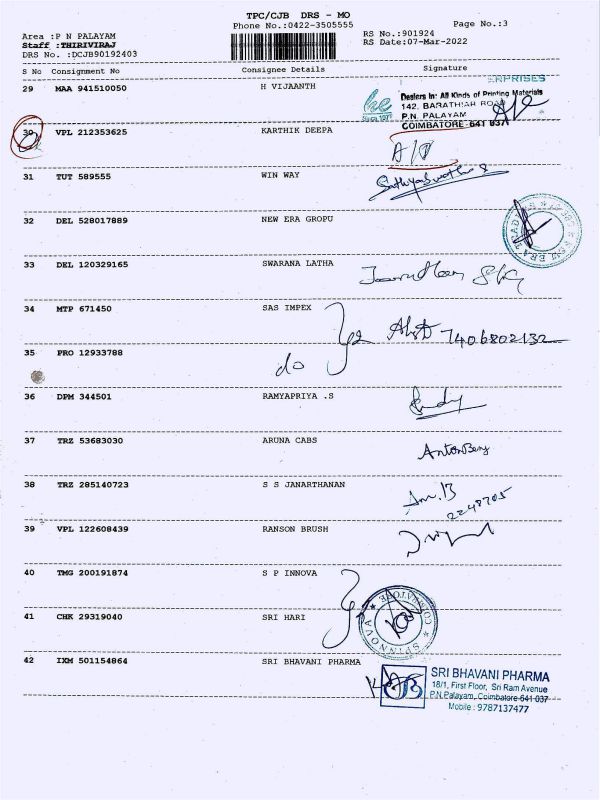 TPC/CJB DRS - MO
Phone No.:0422-3505555
Page No.:3
Area :P N PALAYAM
RS No.:901924
Staff :THIRIVIRAJ
RS Date:07-Mar-2022
DRS No. :DCJB90192403
S No Consignment No Consignee Details Signature
29 MAA 941510050 H VIJAANTH
ENPRISES
Dealers In: All Kinds of Printing Materials
142, BARATHIAR ROAD
P.N. PALAYAM
COIMBATORE-641 037
30 VPL 212353625 KARTHIK DEEPA
31 TUT 589555 WIN WAY
32 DEL 528017889 NEW ERA GROPU
33 DEL 120329165 SWARANA LATHA
34 MTP 671450 SAS IMPEX
7406802132
35 PRO 12933788 do
36 DPM 344501 RAMYAPRIYA .S
37 TRZ 53683030 ARUNA CABS
38 TRZ 285140723 S S JANARTHANAN
2248705
39 VPL 122608439 RANSON BRUSH
40 TMG 200191874 S P INNOVA
41 CHK 29319040 SRI HARI
42 IXM 501154864 SRI BHAVANI PHARMA
SRI BHAVANI PHARMA
18/1, First Floor, Sri Ram Avenue
P.N.Palayam, Coimbatore-641 037
Mobile : 9787137477